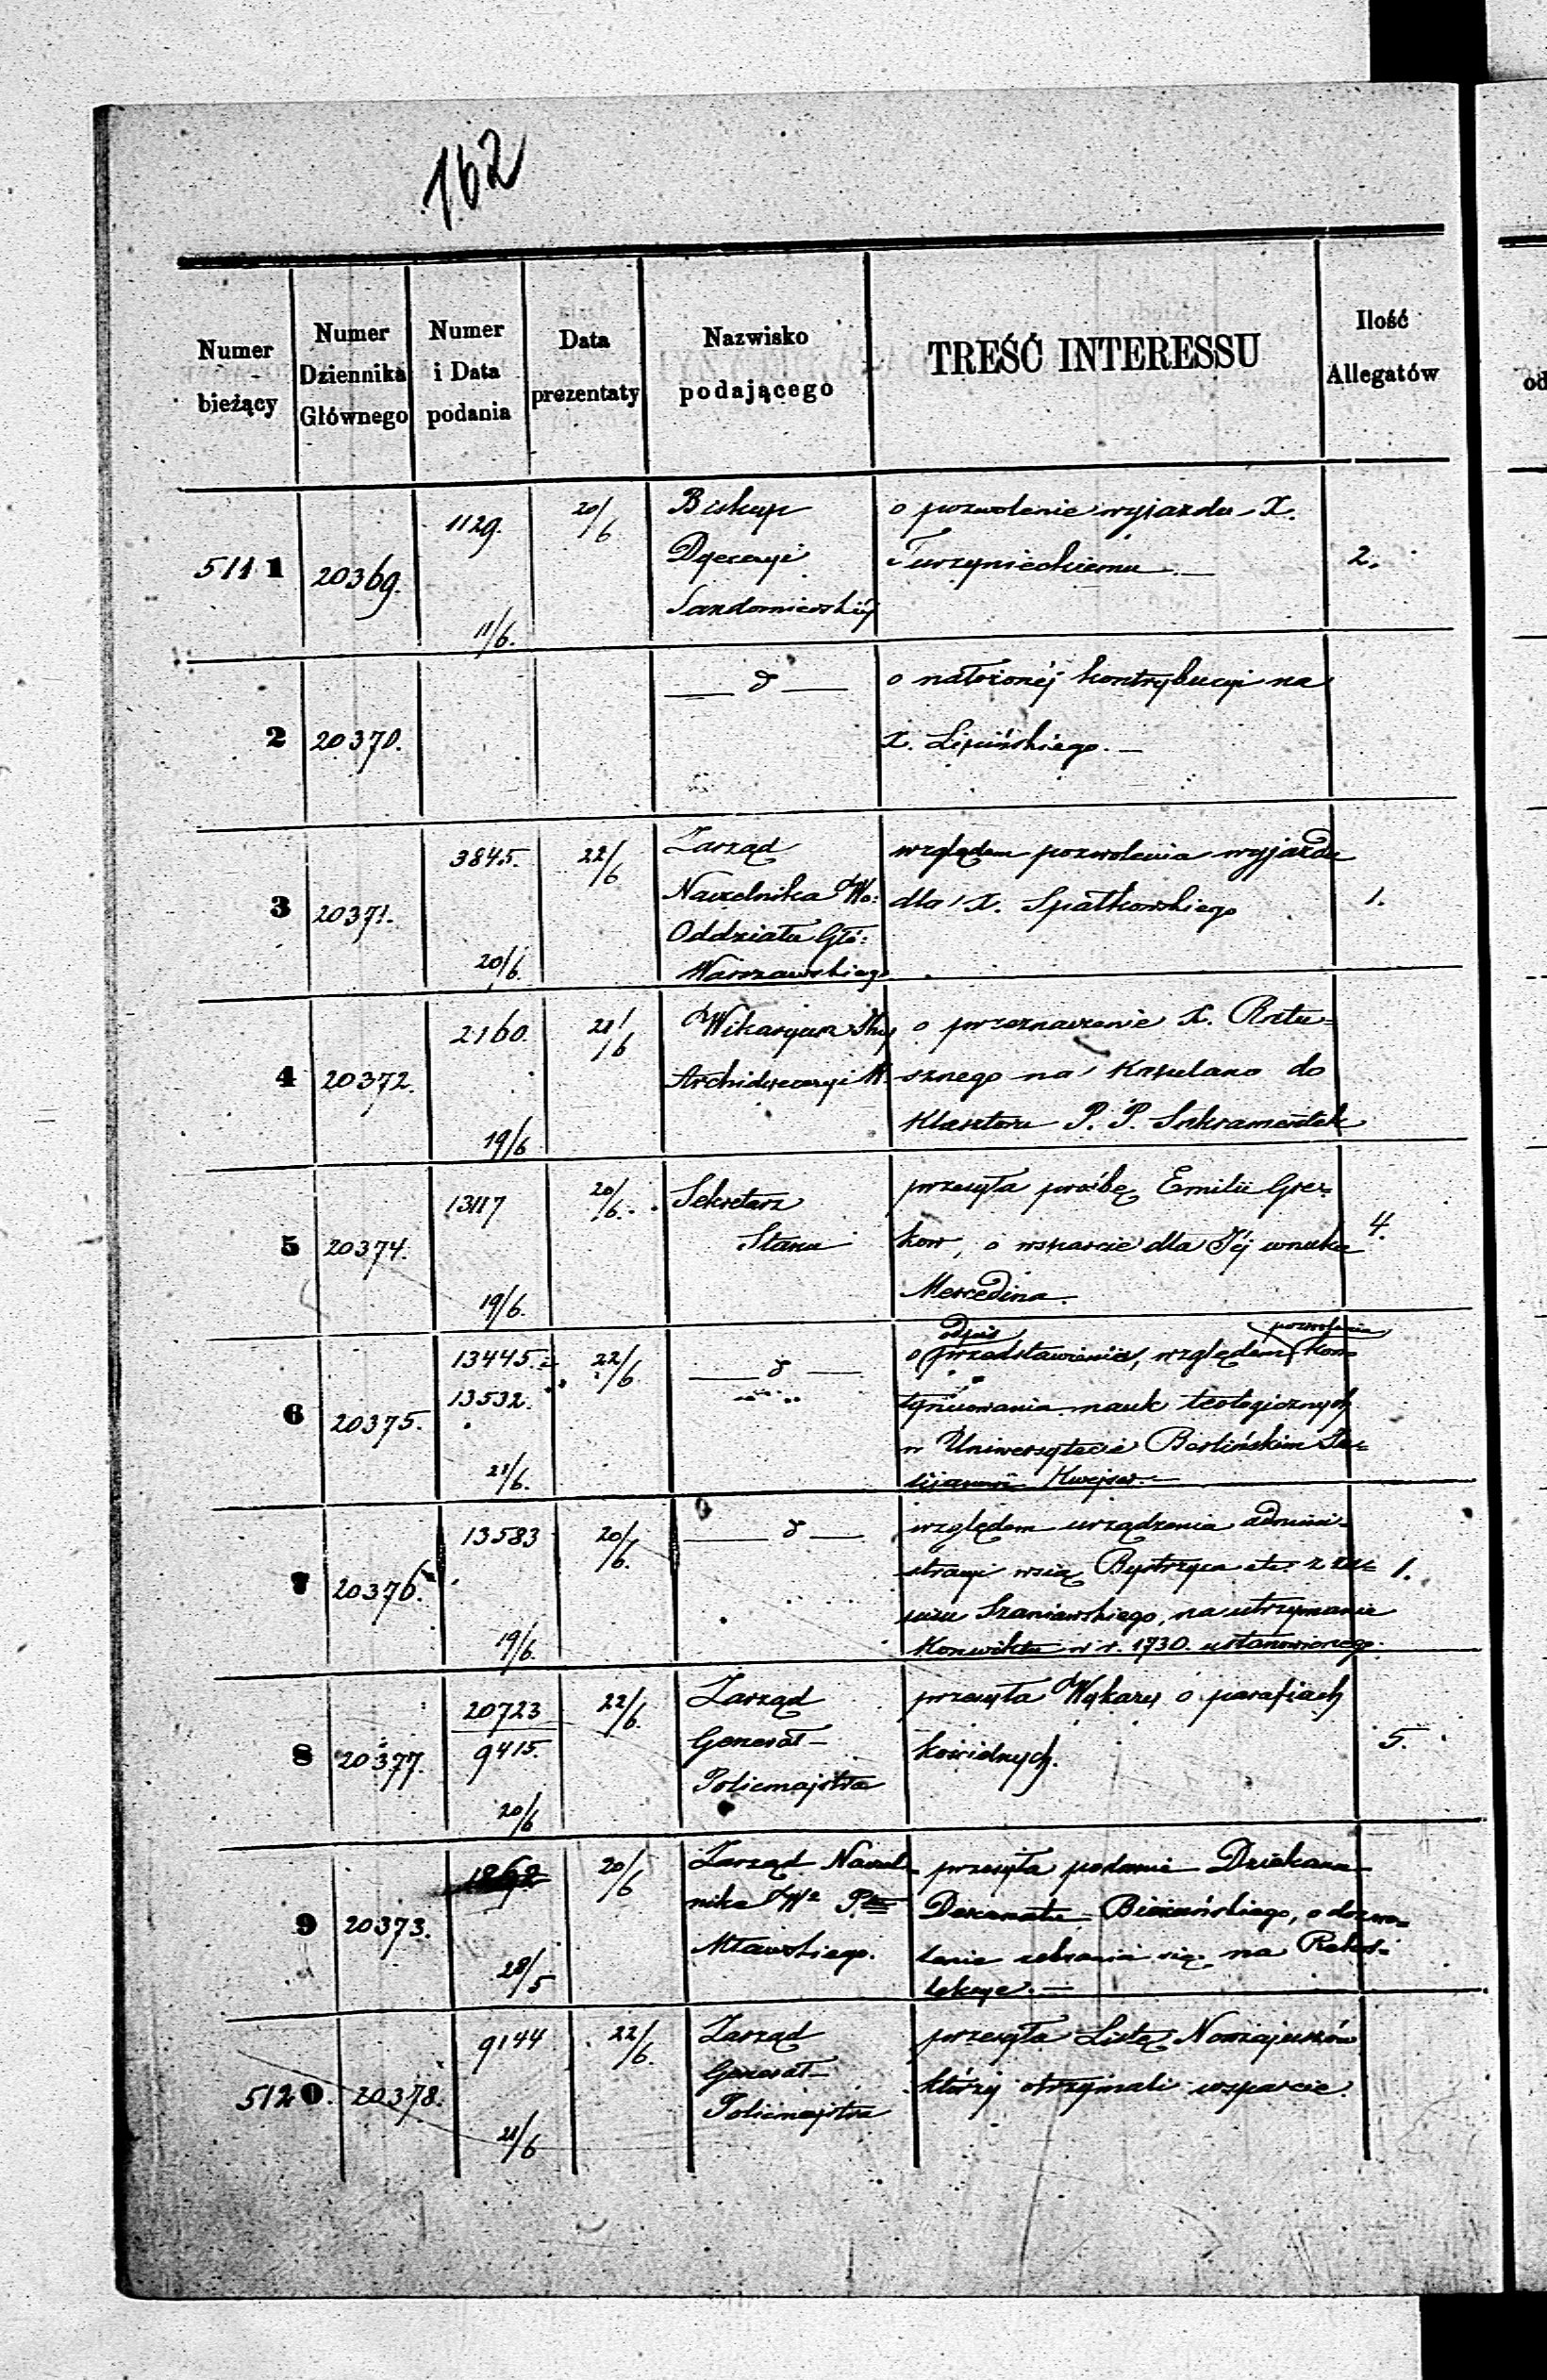 162
Numer bieżący
Numer Dziennika Głównego
Numer i Data podania
Data prezentaty
Nazwisko podającego
TREŚĆ INTERESSU
Ilość Allegatów
5111
20369.
1129.
11/6.
20/6
Biskup
Dyecezyi
Sandomierskiéj
o pozwolenie wyjazdu X.
Turzynieckiemu. —
2.
2
20370.
— d —
o nałożonéj kontrybucyi na
X. Lipińskiego. —
3
20371.
3845.
20/6.
22/6
Zarząd
Naczelnika Wo:
Oddziału Głó:
Warszawskiego
względem pozwolenia wyjazdu
dla X. Spatkowskiego
1.
4
20372.
2160.
19/6
21/6
Wikaryusz
Archidyecezyi W.
o przeznaczenie X. Ratu-
sznego na Kapelana do
Klasztoru P. P. Sakramentek
5
20374.
13117
19/6.
20/6.
Sekretarz
Stanu
przesyła prośbę Emilii Gre-
kow, o wsparcie dla Jéj wnuka
Mercedina.
4.
6
20375.
13445.
13532.
21/6.
22/6
— d —
odpis pozwolenia
o przedstawienia, względem kon-
tynuowania nauk teologicznych
w Uniwersytecie Berlińskim
7
20376.
13583
19/6.
20/6.
— d —
względem urządzenia admini-
stracyi wsią Bystrzyca etc. z
Szaniawskiego, na utrzymanie
Konwiktu w r. 1730. ustanowionego.
1.
8
20377.
20723
9415.
20/6
22/6.
Zarząd
Generał-
Policmajstra
przesyła Wykazy o parafiach
kościelnych.
5.
9
20373.
28/5
20/6
Zarząd Naczel-
nika
Mławskiego.
przesyła podanie Dziekana
Dekanatu Bieżuńskiego, o dozwo-
lenie zebrania się na Rekol-
lekcye. —
5120.
20378.
9144
21/6
22/6.
Zarząd
Generał-
Policmajstra
przesyła Listę
którzy otrzymali wsparcie.